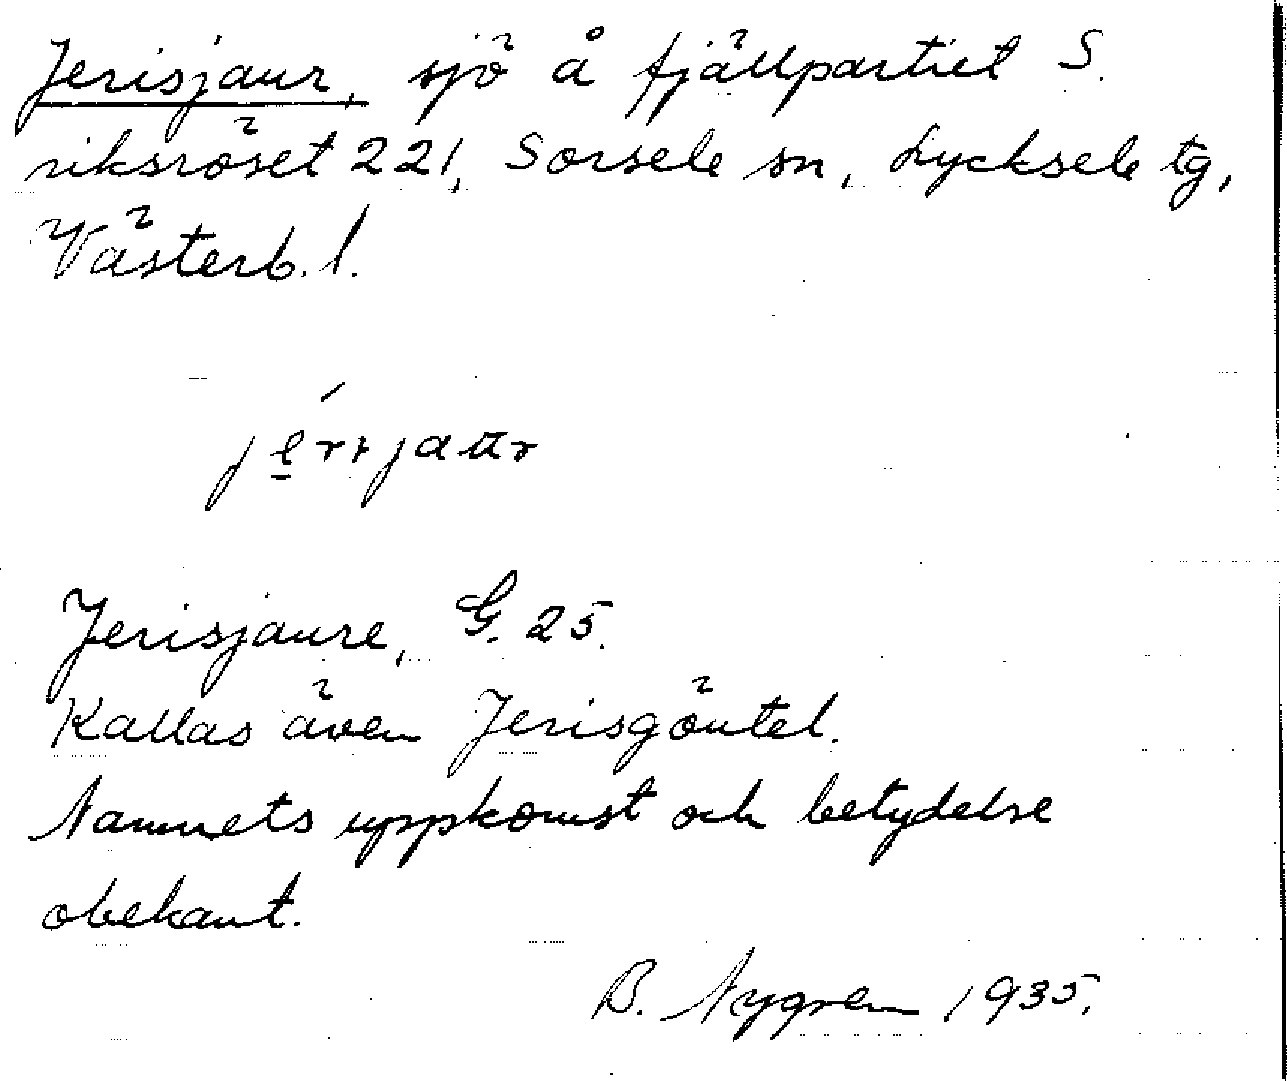 Jerisjaur, sjö å fjällpartiet S.
riksröset 221, Sorsele sn, Lycksele tg,
Västerb. l.
Jerisjaure, G. 25.
Kallas även Jerisgöutel.
Namnets uppkomst och betydelse
obekant.
B. Nygren 1935.